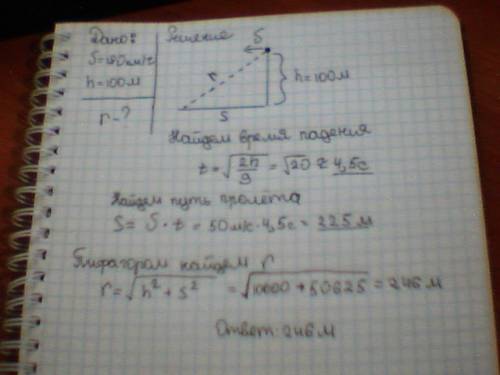 Дано: Решение
υ=180км/г
h=100м
r-?
υ
r
h=100м
s
Найдем время падения
t=√(2h/g)=√20≈4,5с
Найдем путь пролёта
S=υ·t=50м/с·4,5с=225м
Пифагором найдем r
r=√(h²+s²)=√(10000+50625)=246м
Ответ:246м